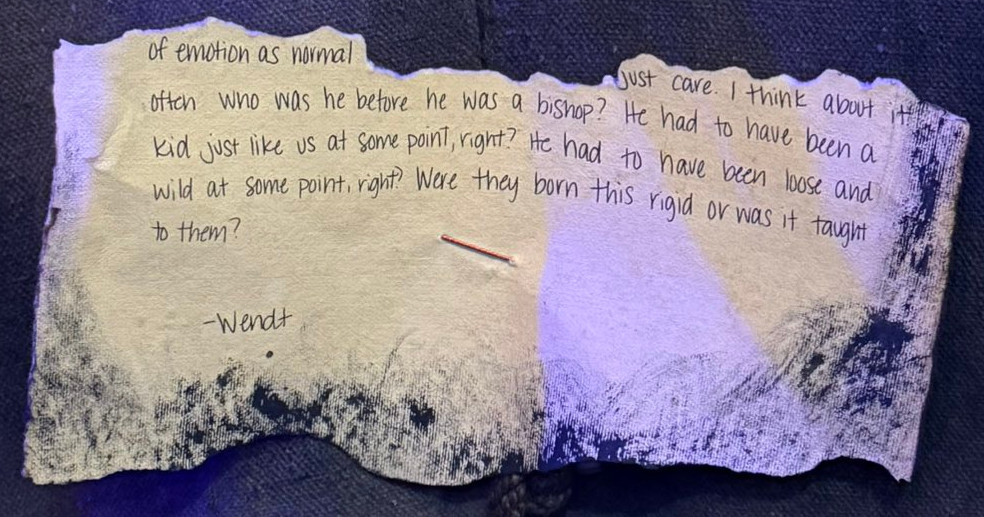 of emotion as normal
just care. I think about it
often who was he before he was a bishop? He had to have been a
kid just like us at some point, right? He had to have been loose and
wild at some point, right? Were they born this rigid or was it taught
to them?
-Wendt